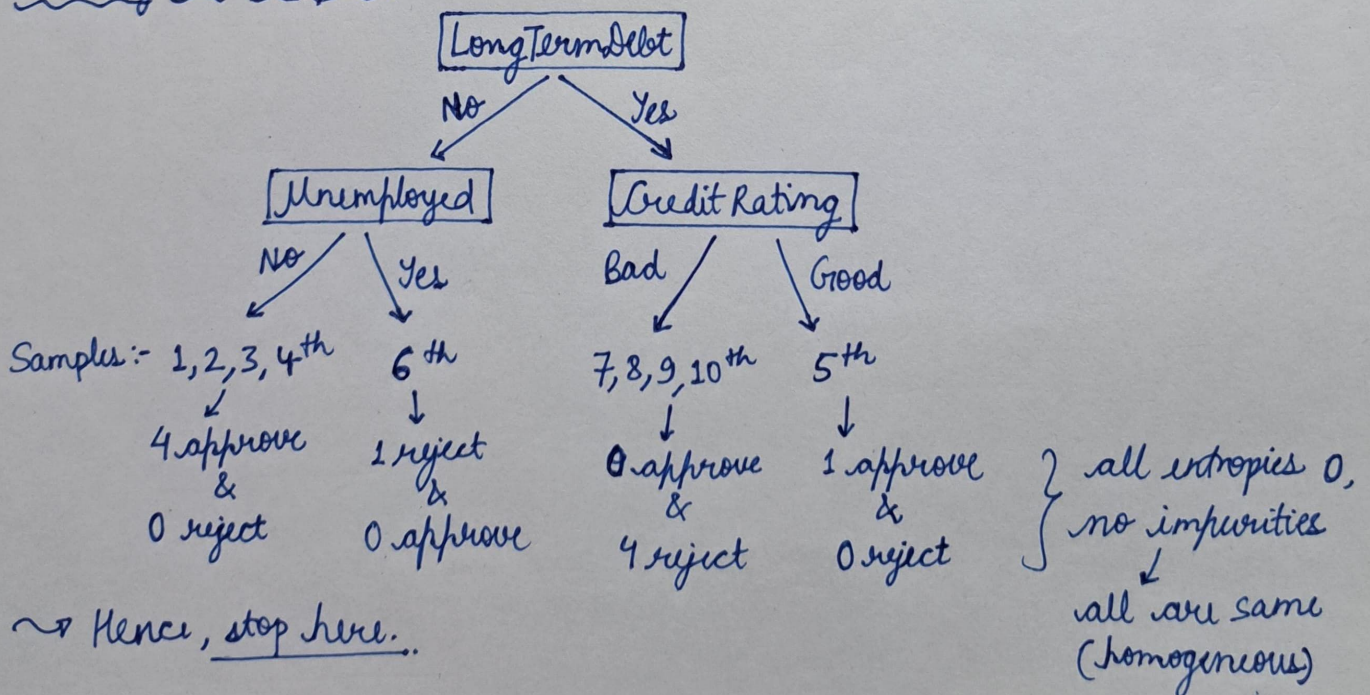 LongTermDebt
No Yes
Unemployed CreditRating
No Yes Bad Good
Samples:- 1,2,3,4th 6th 7,8,9,10th 5th
4 approve 1 reject 0 approve 1 approve
& & & &
0 reject 0 approve 4 reject 0 reject
all entropies 0,
no impurities
all are same
(homogeneous)
Hence, stop here..